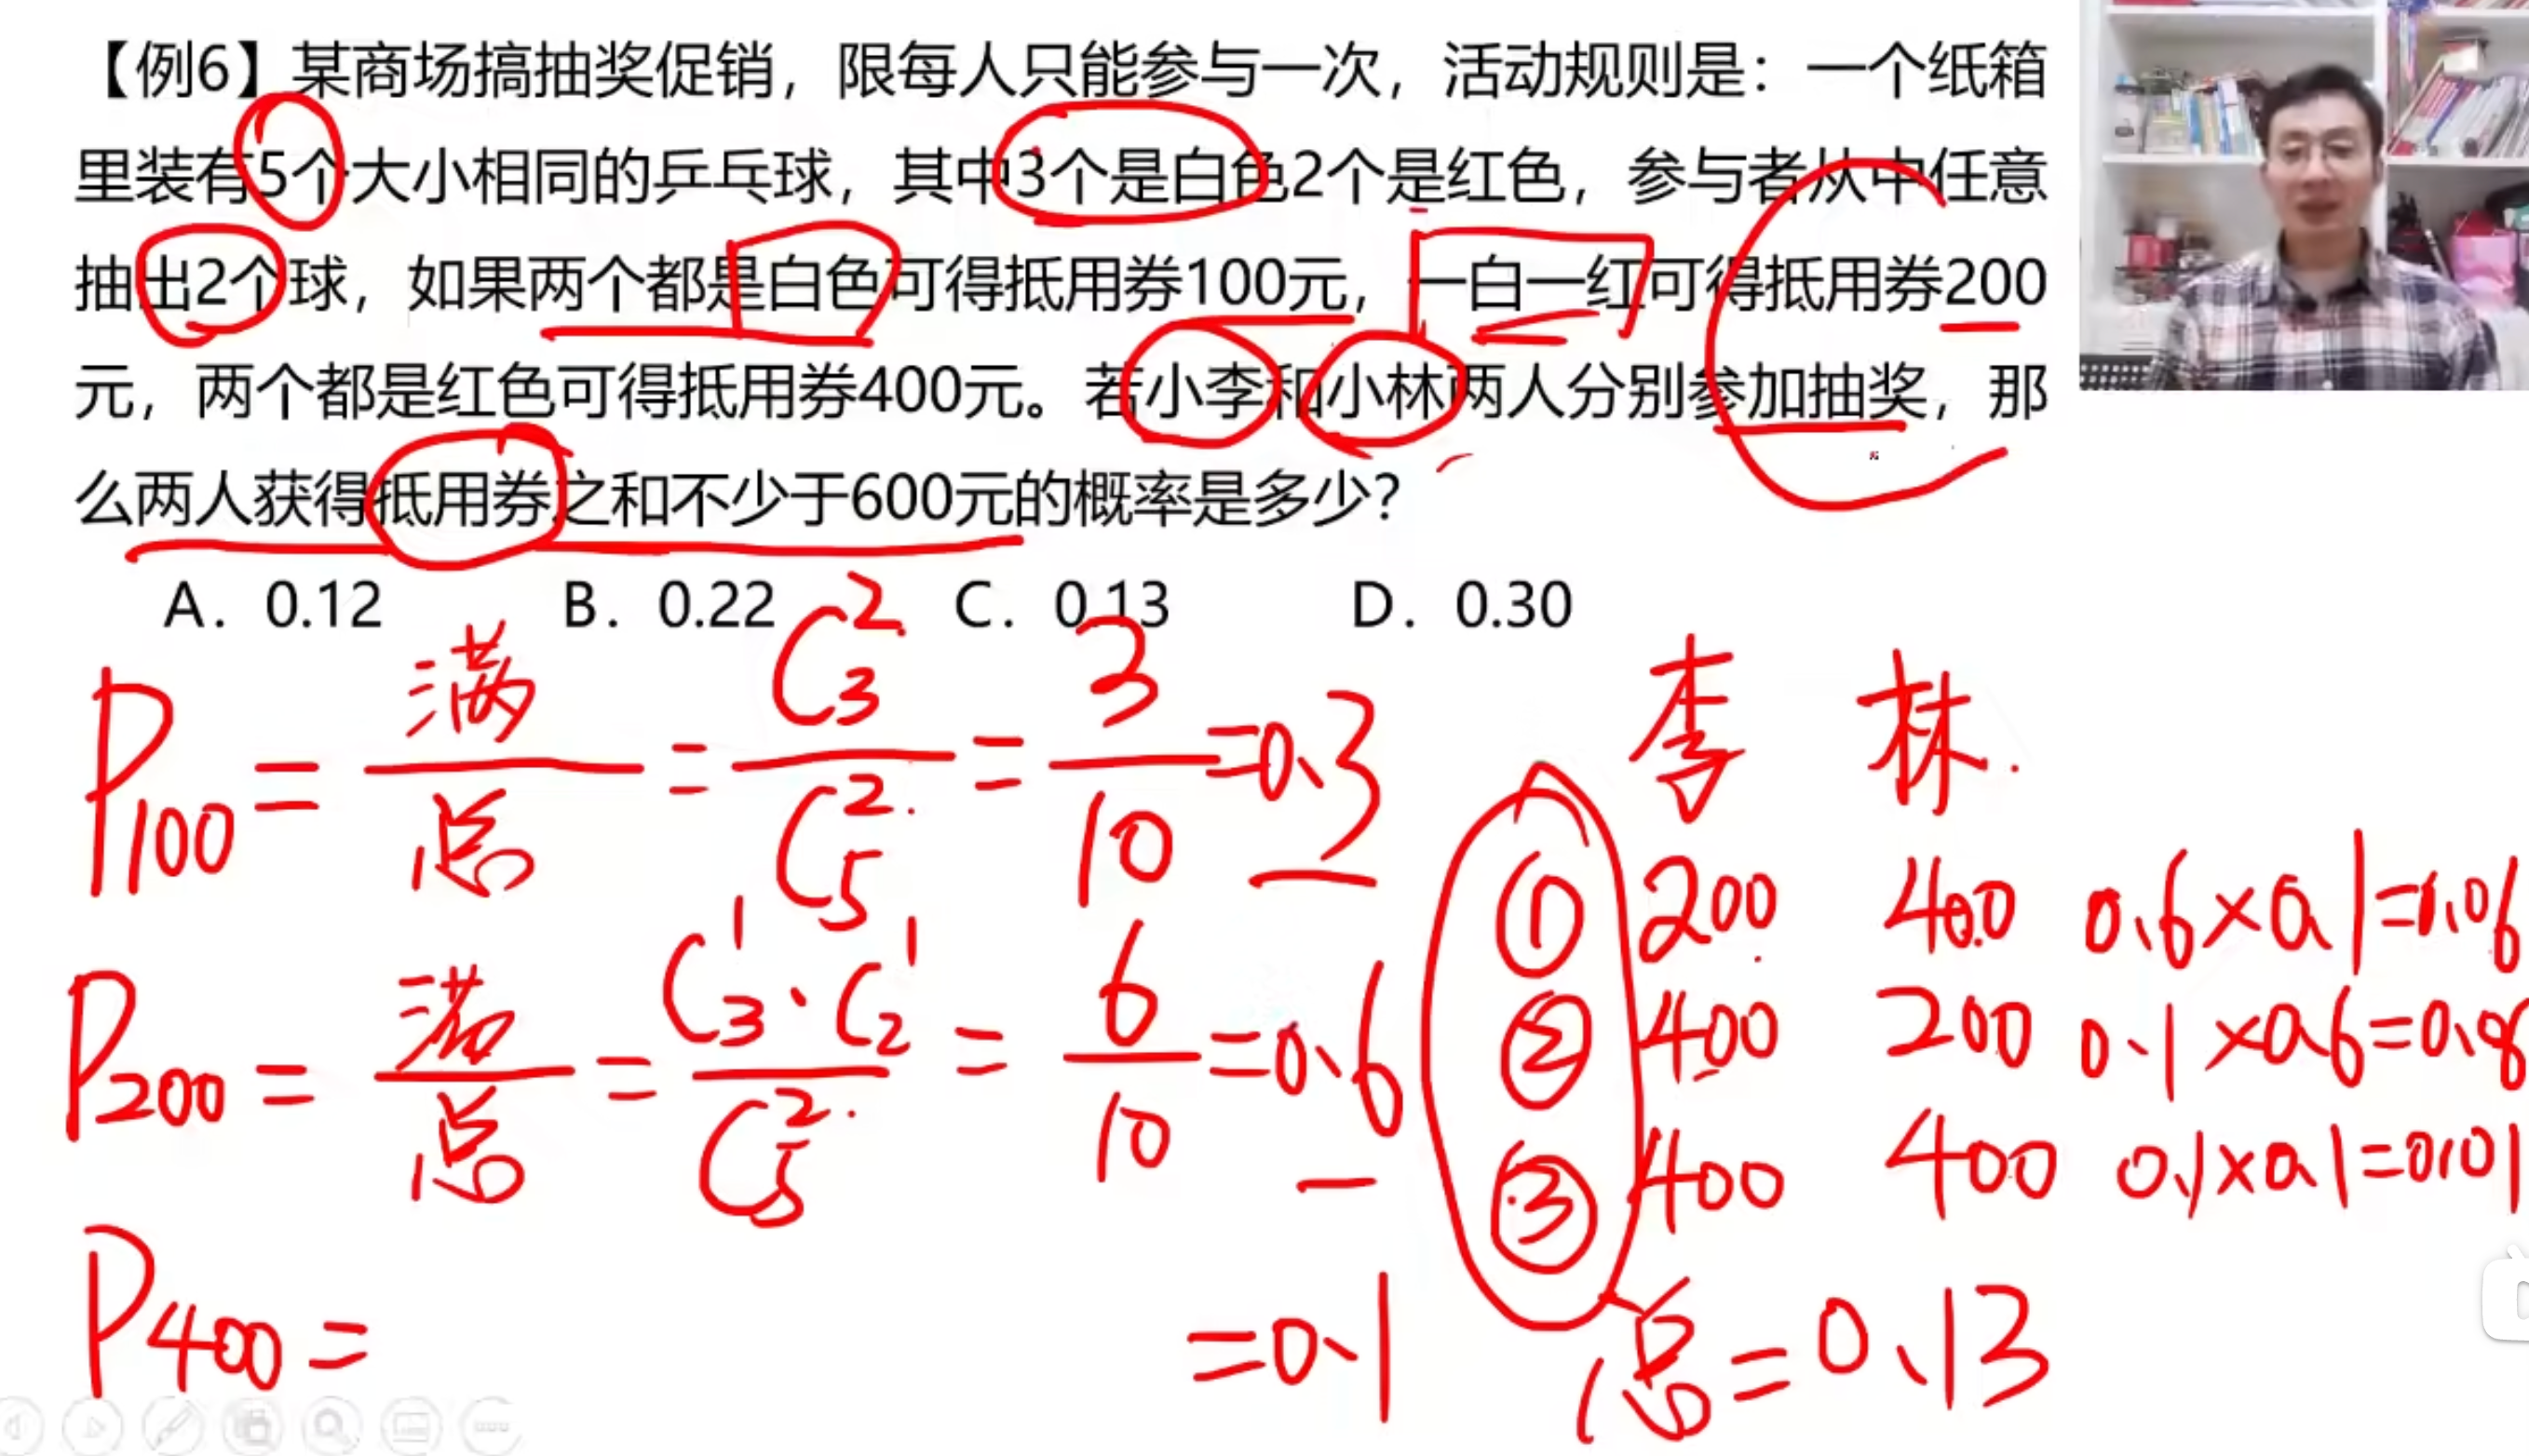 【例6】某商场搞抽奖促销，限每人只能参与一次，活动规则是：一个纸箱
里装有5个大小相同的乒乓球，其中3个是白色2个是红色，参与者从中任意
抽出2个球，如果两个都是白色可得抵用券100元，一白一红可得抵用券200
元，两个都是红色可得抵用券400元。若小李和小林两人分别参加抽奖，那
么两人获得抵用券之和不少于600元的概率是多少?
A. 0.12 B. 0.22 C. 0.13 D. 0.30
P100 = 满/总 = C₃²/C₅² = 3/10 = 0.3
P200 = 满/总 = C₃¹·C₂¹/C₅² = 6/10 = 0.6
P400 = = 0.1
李 林
① 200 400 0.6×0.1=0.06
② 400 200 0.1×0.6=0.06
③ 400 400 0.1×0.1=0.01
总=0.13